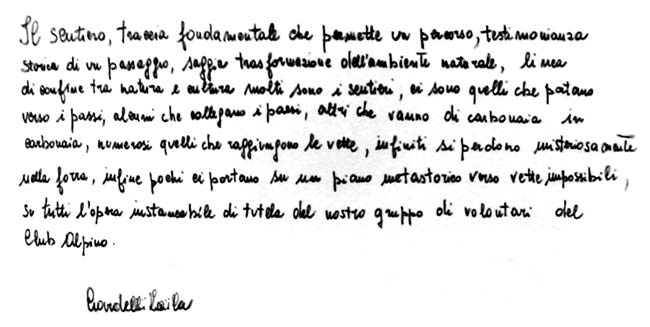 Il sentiero, traccia fondamentale che permette un percorso, testimonianza
storica di un passaggio, saggia trasformazione dell'ambiente naturale, linea
di confine tra natura e cultura molti sono i sentieri, ci sono quelli che portano
verso i passi, alcuni che collegano i paesi, altri che vanno di carbonaia in
carbonaia, numerosi quelli che raggiungono le vette, infiniti si perdono misteriosamente
nella forra, infine pochi ci portano su un piano metastorico verso vette impossibili,
su tutti l'opera instancabile di tutela del nostro gruppo di volontari del
Club Alpino.